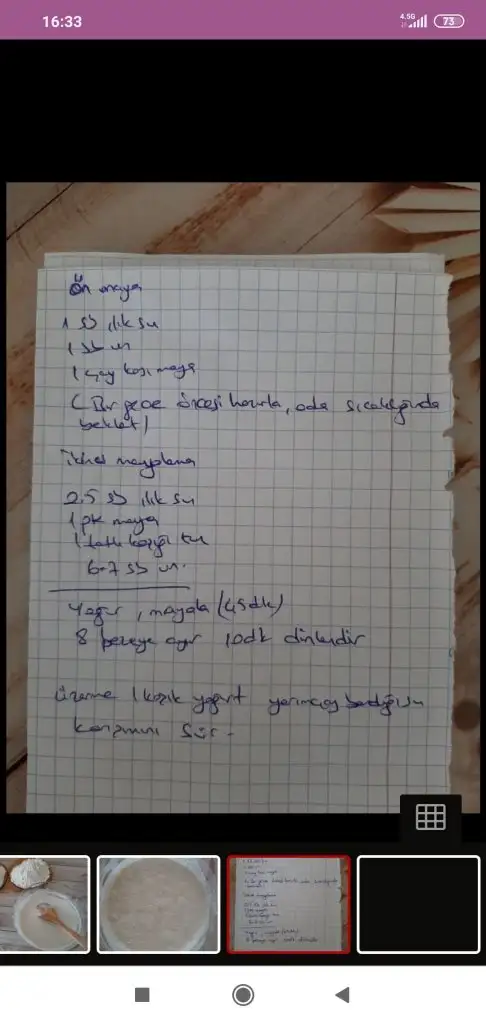 16:33
4.5G
73
Ön maya
1 sb ılık su
1 sb un
1 çay kaşı maya
( Bir gece öncesi hazırla, oda sıcaklığında
beklet)
ikinci mayalama
2.5 sb ılık su
1 pk maya
1 tatlı kaşığı tuz
6-7 sb un.
Yoğur, mayala (45dk)
8 bezeye ayır 10dk dinlendir
Üzerine 1 kaşık yoğurt yarım çay bardağı su
karışımını sür.